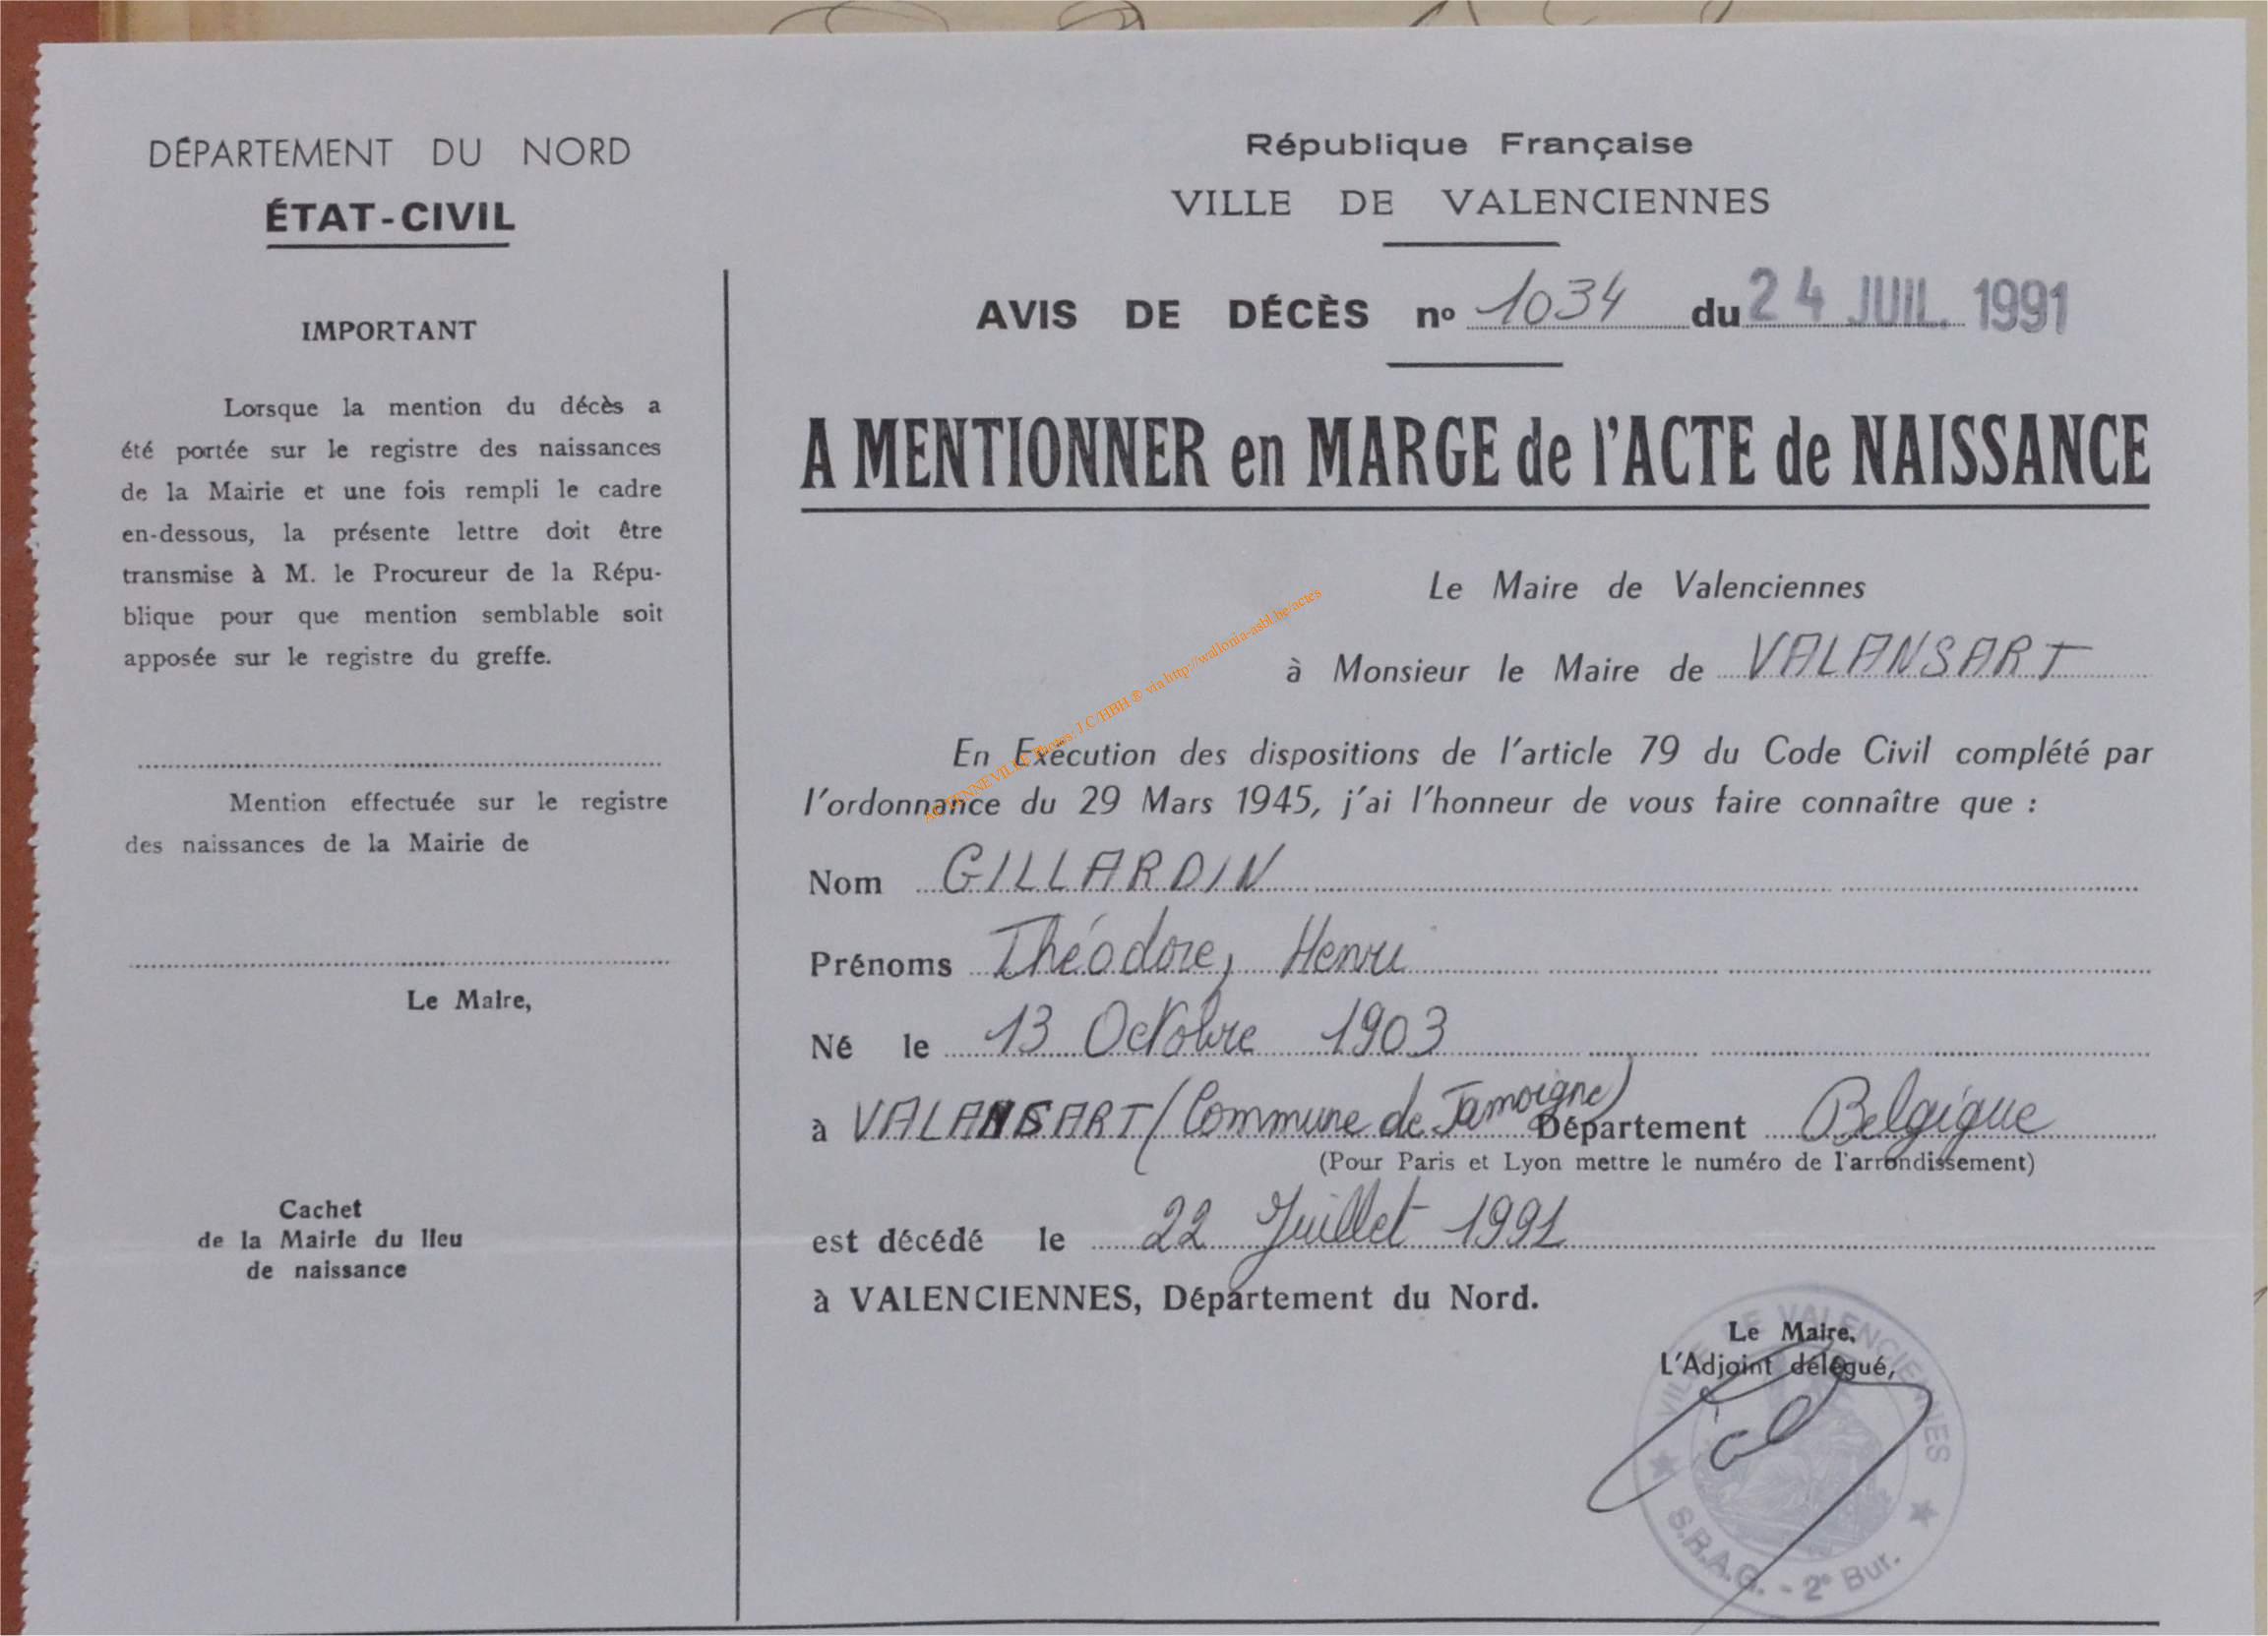 DÉPARTEMENT DU NORD
ÉTAT-CIVIL
IMPORTANT
Lorsque la mention du décès a
été portée sur le registre des naissances
de la Mairie et une fois rempli le cadre
en-dessous, la présente lettre doit être
transmise à M. le Procureur de la Répu-
blique pour que mention semblable soit
apposée sur le registre du greffe.
Mention effectuée sur le registre
des naissances de la Mairie de
Le Maire,
Cachet
de la Mairie du lieu
de naissance
République Française
VILLE DE VALENCIENNES
AVIS DE DÉCÈS nº 1034 du 24 JUIL. 1991
A MENTIONNER en MARGE de l'ACTE de NAISSANCE
Le Maire de Valenciennes
à Monsieur le Maire de VALANSART
En Exécution des dispositions de l'article 79 du Code Civil complété par
l'ordonnance du 29 Mars 1945, j'ai l'honneur de vous faire connaître que :
Nom GILLARDIN
Prénoms Théodore, Henri
Né le 13 Octobre 1903
à VALANSART (Commune de Jamoigne) Département Belgique
(Pour Paris et Lyon mettre le numéro de l'arrondissement)
est décédé le 22 Juillet 1991
à VALENCIENNES, Département du Nord.
Le Maire,
L'Adjoint délégué,
VILLE DE VALENCIENNES
S.R.A.G. - 2e Bur.
Photos: J.C/HBH ® via http://wallonia-asbl.be/actes